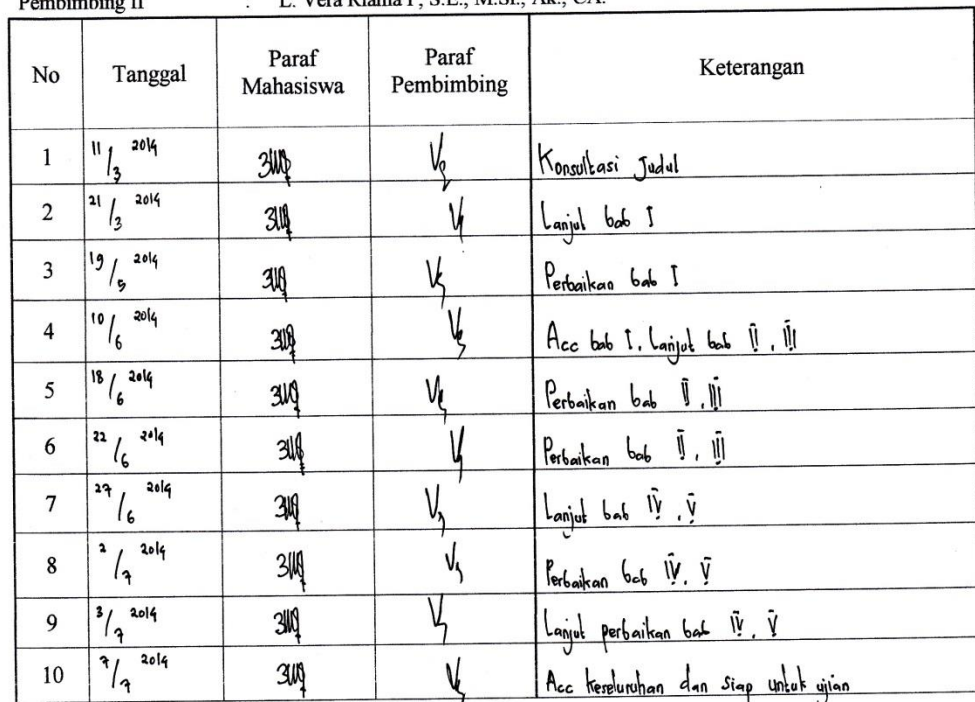 Pembimbing II : L. Vera Riama P, S.E., M.Si., Ak., CA.
No Tanggal Paraf Mahasiswa Paraf Pembimbing Keterangan
1 11/3 2014 Konsultasi Judul
2 21/3 2014 Lanjut bab I
3 19/5 2014 Perbaikan bab I
4 10/6 2014 Acc bab I, Lanjut bab II, III
5 18/6 2014 Perbaikan bab II, III
6 22/6 2014 Perbaikan bab II, III
7 27/6 2014 Lanjut bab IV, V
8 2/7 2014 Perbaikan bab IV, V
9 3/7 2014 Lanjut perbaikan bab IV, V
10 7/7 2014 Acc keseluruhan dan siap untuk ujian